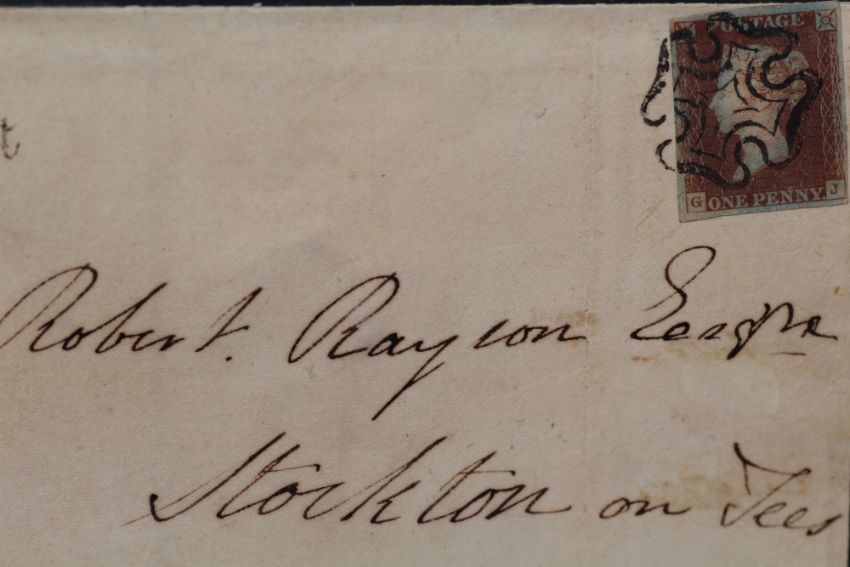 POSTAGE
G ONE PENNY. J
Robert. Rayson Esqre
Stockton on Tees